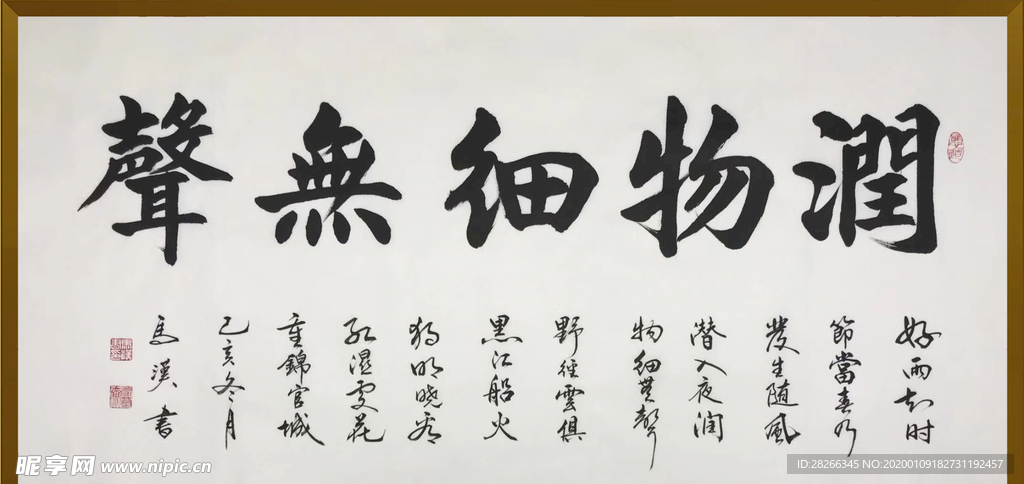 潤物細無聲
好雨知时
節當春乃
發生随風
潜入夜润
物细無聲
野径雲俱
黑江船火
独明晓看
红湿处花
重錦官城
己亥冬月
馬漢书
昵享网 www.nipic.cn
ID:28266345 NO:20200109182731192457